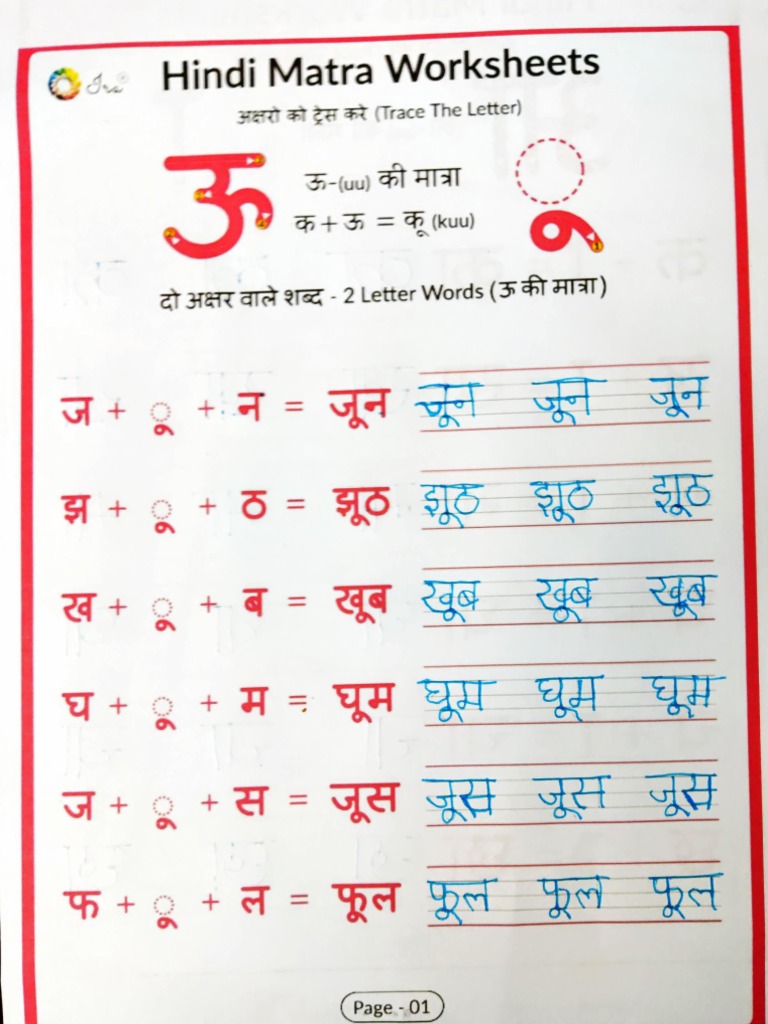 Hindi Matra Worksheets
अक्षरो को ट्रेस करे (Trace The Letter)
ऊ ऊ-(uu) की मात्रा ू
क + ऊ = कू (kuu)
दो अक्षर वाले शब्द - 2 Letter Words (ऊ की मात्रा)
ज + ू + न = जून जून जून जून
झ + ू + ठ = झूठ झूठ झूठ झूठ
ख + ू + ब = खूब खूब खूब खूब
घ + ू + म = घूम घूम घूम घूम
ज + ू + स = जूस जूस जूस जूस
फ + ू + ल = फूल फूल फूल फूल
Page - 01